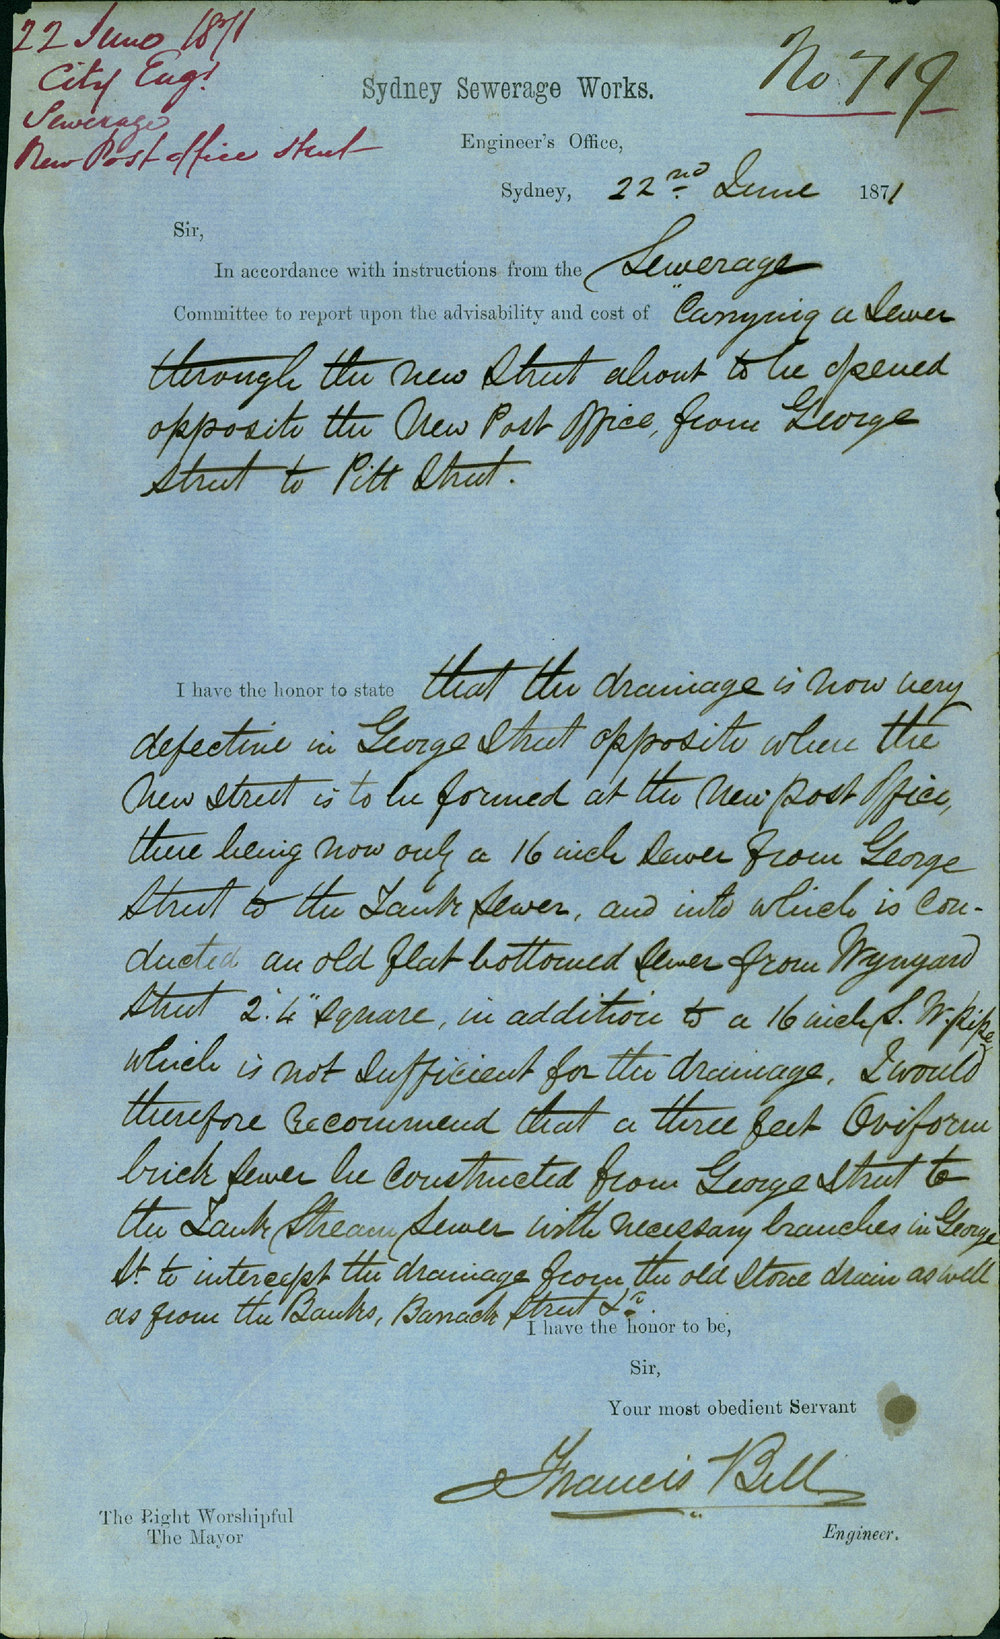 22 June 1871
City Engr
Sewerage
New Post office Street
No 719
Sydney Sewerage Works.
Engineer's Office,
Sydney, 22nd June 1871
Sir,
In accordance with instructions from the Sewerage
Committee to report upon the advisability and cost of "Carrying a Sewer
through the new Street about to be opened
opposite the New Post Office, from George
Street to Pitt Street.
I have the honor to state that the drainage is now very
defective in George Street opposite where the
New Street is to be formed at the New post Office,
there being now only a 16 inch Sewer from George
Street to the Tank Sewer, and into which is Con-
ducted an old flat bottomed Sewer from Wynyard
Street 2'.4" square, in addition to a 16 inch S. W. pipe,
which is not Sufficient for the drainage. I would
therefore Recommend that a three feet Oviform
brick Sewer be Constructed from George Street to
the Tank Stream Sewer with necessary branches in George
St. to intercept the drainage from the old Stone drain as well
as from the Banks, Barrack Street &c.
I have the honor to be,
Sir,
Your most obedient Servant
Francis Bell
The Right Worshipful
The Mayor
Engineer.